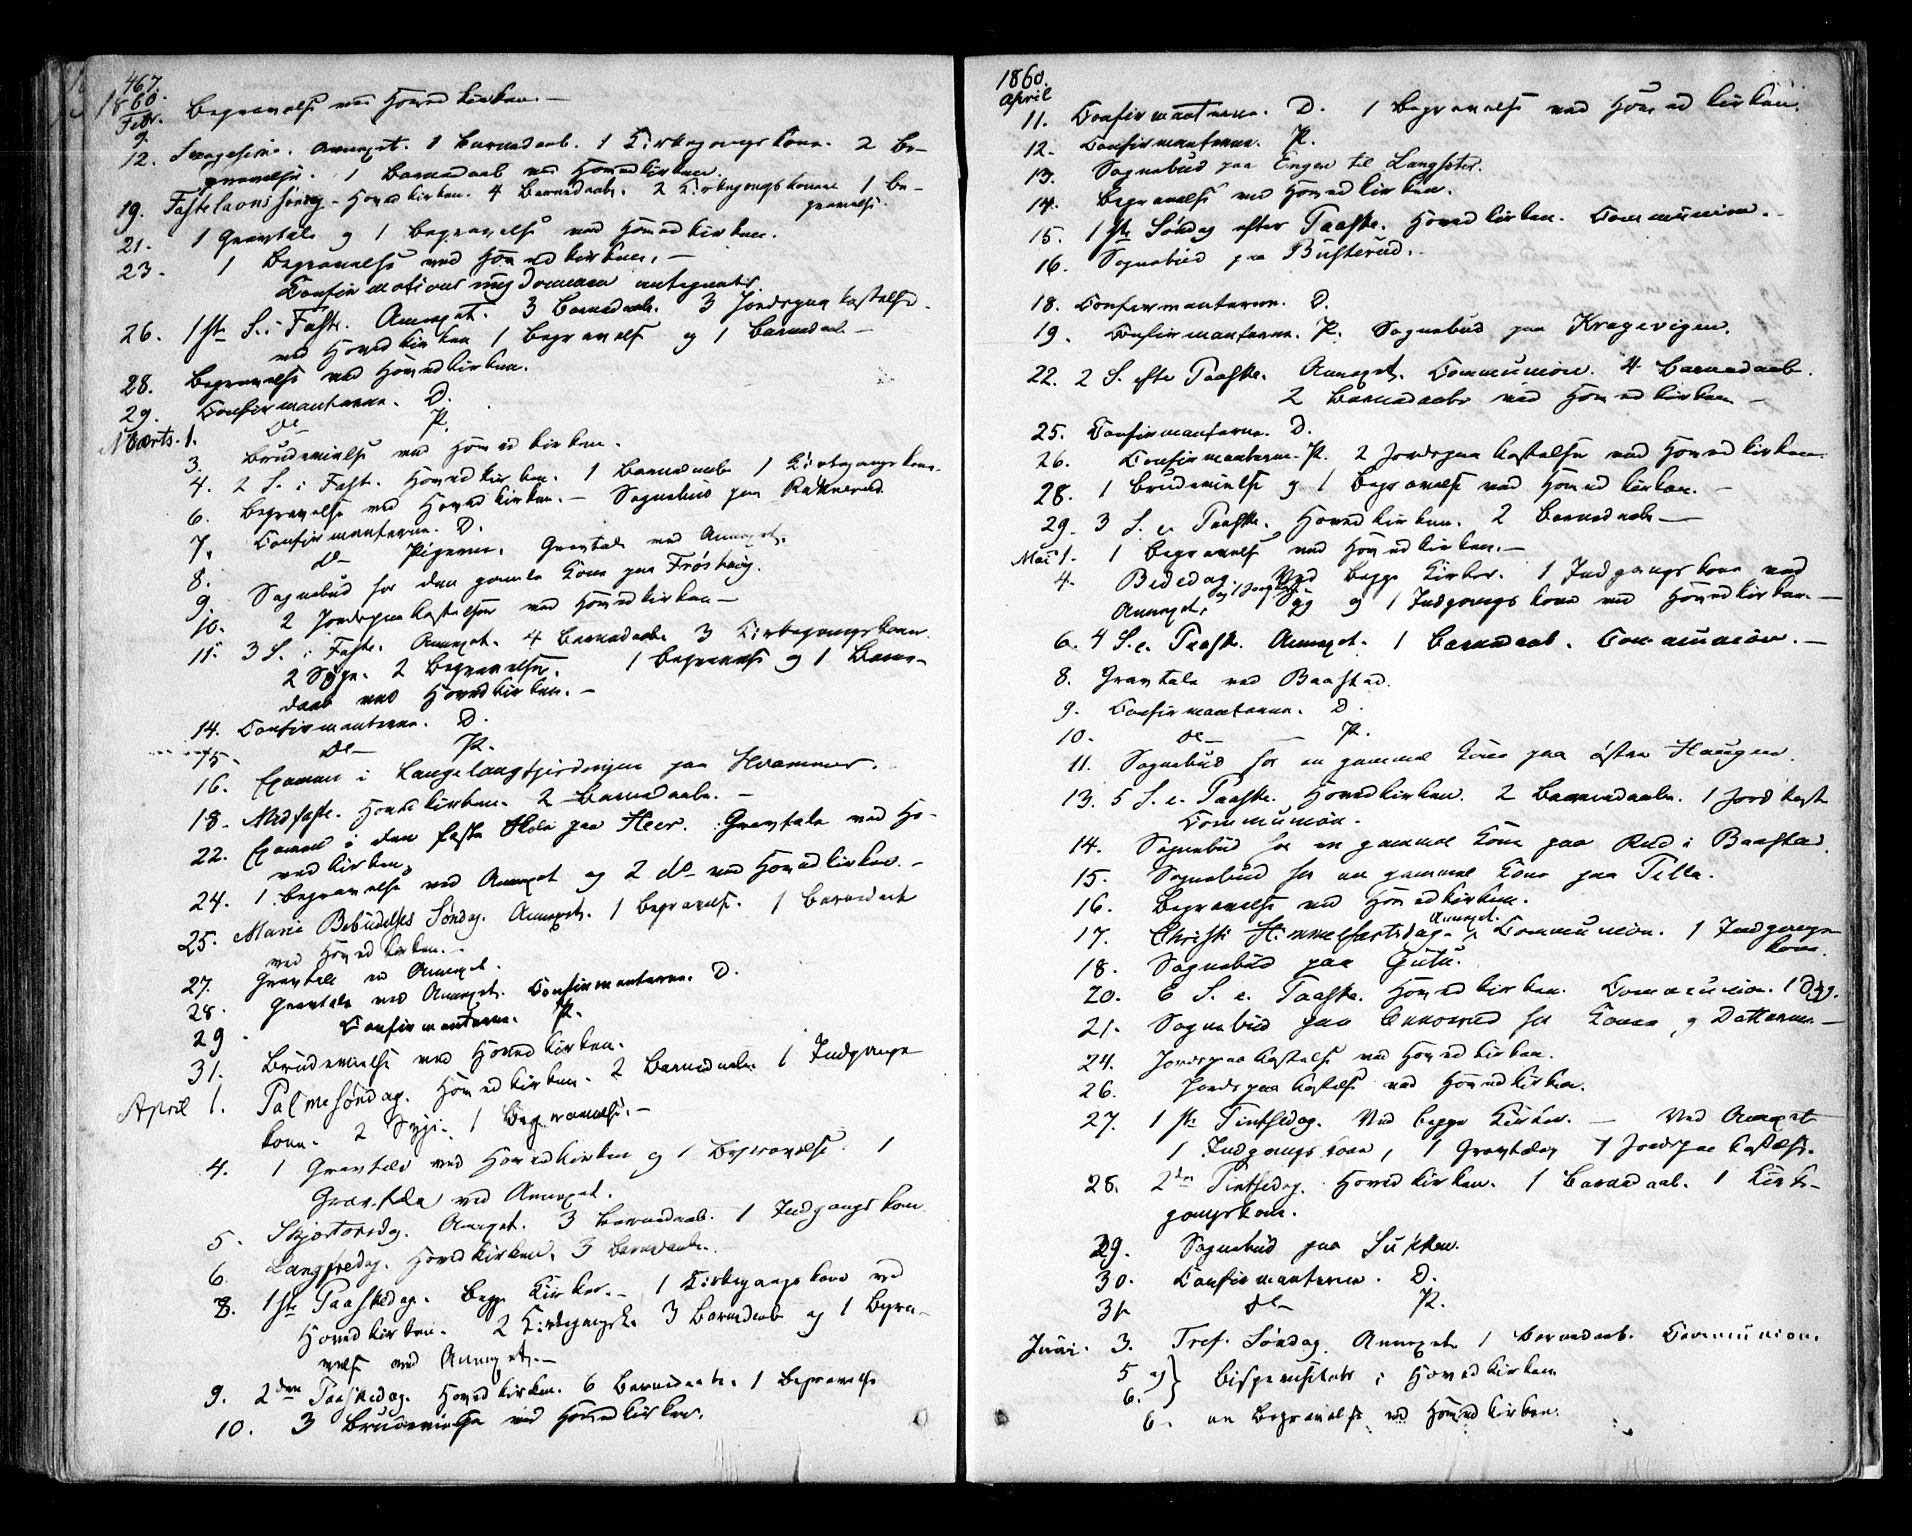 467.
1860.
Febr.
9. Begravelse ved Hovedkirken. —
12. Sexagesima. Annexet. 1 Barnedaab. 1 Kirkegangskone. 2 Be-
gravelser. 1 Barnedaab ved Hovedkirken.
19. Fastelavnssøndag – Hovedkirken. 4 Barnedaab. 2 Kirkegangskoner 1 Be-
gravelse.
21. 1 Gravtale og 1 Begravelse ved Hovedkirken.
23. 1 Begravelse ved Hovedkirken. —
Confirmationsungdommen antegnet.
26. 1ste S. i Faste. Annexet. 3 Barnedaab. 3 Jordspaakastelser.
ved Hovedkirken 1 Begravelse og 1 Barnedaab —
28. Begravelse ved Hovedkirken.
29. Confirmanterne. D.
Marts. 1. do P.
3. Brudevielse ved Hovedkirken.
4. 2 S. i Fast. Hovedkirken. 1 Barnedaab 1 Kirkegangskone.
6. Begravelse ved Hovedkirken. – Sognebud paa Raknerud.
7. Confirmanterne. D.
8. do – Pigerne. Gravtale ved Annexet.
9. Sognebud for den gamle Kone paa Frøshaug.
10. 2 Jordspaakastelser ved Hovedkirken —
11. 3 S. i Faste. Annexet. 4 Barnedaab 3 Kirkegangskoner.
2 Syge. 2 Begravelser. 1 Begravelse og 1 Barne-
daab ved Hovedkirken. —
14. Confirmanterne. D.
15 – do – P.
16. Examen i Langelangfjerdingen paa Hvammer.
18. Midfaste. Hovedkirken. 2 Barnedaab. —
22. Examen i den faste Skole paa Heer. Gravtale ved Ho-
vedkirken.
24. 1 Begravelse ved Annexet og 2 do ved Hovedkirken. —
25. Mariæ Bebudelses Søndag. Annexet. 1 Begravelse. 1 Barnedaab
ved Hovedkirken. –
27. Gravtale ved Annexet.
28. Gravtale ved Annexet. Confirmanterne. D.
29. Confirmanterne. P.
31. Brudevielse ved Hovedkirken.
April 1. Palmesøndag. Hovedkirken. 2 Barnedaab 1 Indgangs
kone. 2 Syge. 1 Begravelse. —
4. 1 Gravtale ved Hovedkirken og 1 Begravelse 1
Gravtale ved Annexet.
5. Skjærtorsdag. Annexet. 3 Barnedaab. 1 Indgangskone.
6. Langfredag. Hovedkirken. 3 Barnedaab.
8. 1ste Paaskedag. Begge Kirker. – 1 Kirkegangskone ved
Hovedkirken. 2 Kirkegangsk. 3 Barnedaab og 1 Begra-
velse ved Annexet. —
9. 2den Paaskedag. Hovedkirken. 6 Barnedaab. 1 Begravelse
10. 3 Brudevielser ved Hovedkirken.
1860.
April
11. Confirmanterne. D. 1 Begravelse ved Hovedkirken.
12. Confirmanterne. P.
13. Sognebud paa Engen til Langseter.
14. Begravelse ved Hovedkirken.
15. 1ste Søndag efter Paaske. Hovedkirken. Communion. —
16. Sognebud paa Busterud. –
18. Confirmanterne. D.
19. Confirmanterne. P. Sognebud paa Kragevigen.
22. 2 S. efter Paaske. Annexet. Communion. 4 Barnedaab.
2 Barnedaab ved Hovedkirken —
25. Confirmanterne. D.
26. Confirmanterne. P. 2 Jordspaakastelser ved Hovedkirken
28. 1 Brudevielse og 1 Begravelse ved Hovedkirken. —
29. 3 S. e. Paaske. Hovedkirken. 2 Barnedaab —
Mai 1. 1 Begravelse ved Hovedkirken. —
4. Bededag. Ved begge Kirker. 1 Indgangskone ved
Annexet, og 1 Indgangskone ved Hovedkirken. —
6. 4 S. e. Paaske. Annexet. 1 Barnedaab. Communion. —
8. Gravtale ved Baastad.
9. Confirmanterne. D.
10. do – P.
11. Sognebud for en gammel Kone paa østre Haugen.
13. 5 S. e. Paaske. Hovedkirken. 2 Barnedaab. 1 Jordkast
Communion.
14. Sognebud for en gammel Kone paa Rud i Baastad.
15. Sognebud for en gammel Kone paa Pelle.
16. Begravelse ved Hovedkirken.
17. Christi Himmelfartsdag. Annexet. Communion. 1 Indgangs
kone.
18. Sognebud paa Gutu.
20. 6 S. e. Paaske. Hovedkirken. Communion.
21. Sognebud paa for Konen og Datteren —
24. Jordspaakastelse ved Hovedkirken.
26. Jordspaakastelse ved Hovedkirken.
27. 1ste Pintsedag. Ved begge Kirker. — Ved Annexet
1 Indgangskone, 1 Gravtale, 1 Jordspaakastelse.
28. 2den Pintsedag. Hovedkirken. 1 Barnedaab. 1 Kirke-
gangskone.
29. Sognebud paa Sukken.
30. Confirmanterne. D.
31. do – P.
Juni. 3. Tref. Søndag. Annexet 1 Barnedaab. Communion.
5 og
6. } Bispevisitats i Hovedkirken
6. en Begravelse ved Hovedkirken.